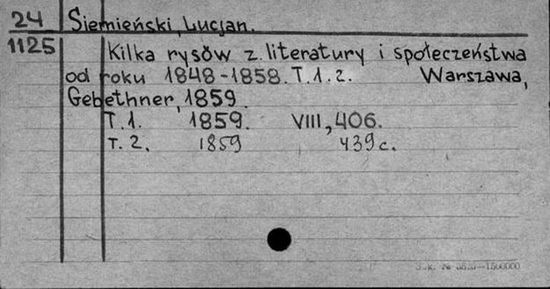 24 Siemieński, Lucjan.
1125 Kilka rysów z literatury i społeczeństwa
od roku 1848-1858. T.1.2. Warszawa,
Gebethner, 1859.
T.1. 1859. VIII, 406.
T.2. 1859 439 c.